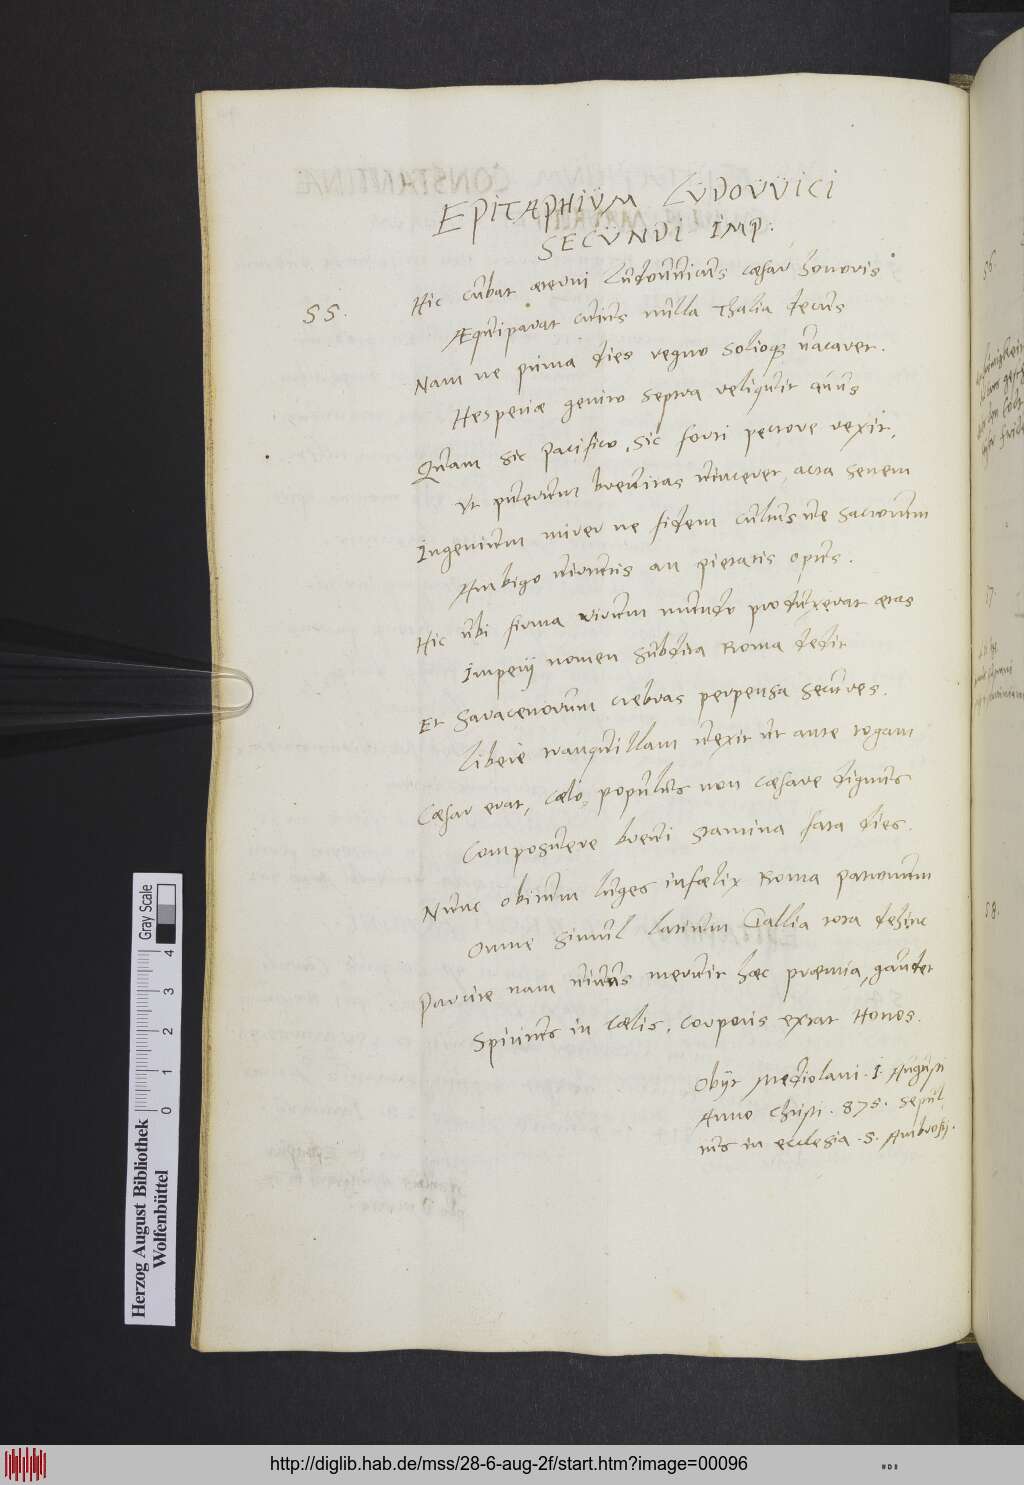 EPITAPHIUM LUDOUUICI
SECUNDI IMP.
55.
Hic cubat æterni Ludouuicus cæsar honoris
Æquiparat cuius nulla Thalia decus
Nam ne prima dies regno solioq; uacaret.
Hesperiæ genito sceptra reliquit auus
Quam sic pacifico, sic forti pectore rexit,
Ut puerum breuitas uinceret, acta senem
Ingenium mirer ne fidem cultusue sacrorum
Ambigo uirtutis an pietatis opus.
Hic ubi firma virum mundo produxerat ætas
Imperij nomen subdita Roma dedit
Et Saracenorum crebras perpensa secures.
Libere tranquillam uexit ut ante togam
Cæsar erat, cælo, populus non cæsare dignus
Composuere breui stamina fata dies.
Nunc obitum luges infælix Roma patronum
Omne simul Latium Gallia tota dehinc
Parcite nam uiuus meruit hæc præmia, gaudet
Spiritus in cælis, corporis extat Honos.
Obijt Mediolani. I. Augusti
Anno Christi. 875. sepul
tus in ecclesia. S. Ambrosij.
56.
57.
58.
Herzog August Bibliothek
Wolfenbüttel
0 1 2 3 4
Gray Scale
http://diglib.hab.de/mss/28-6-aug-2f/start.htm?image=00096